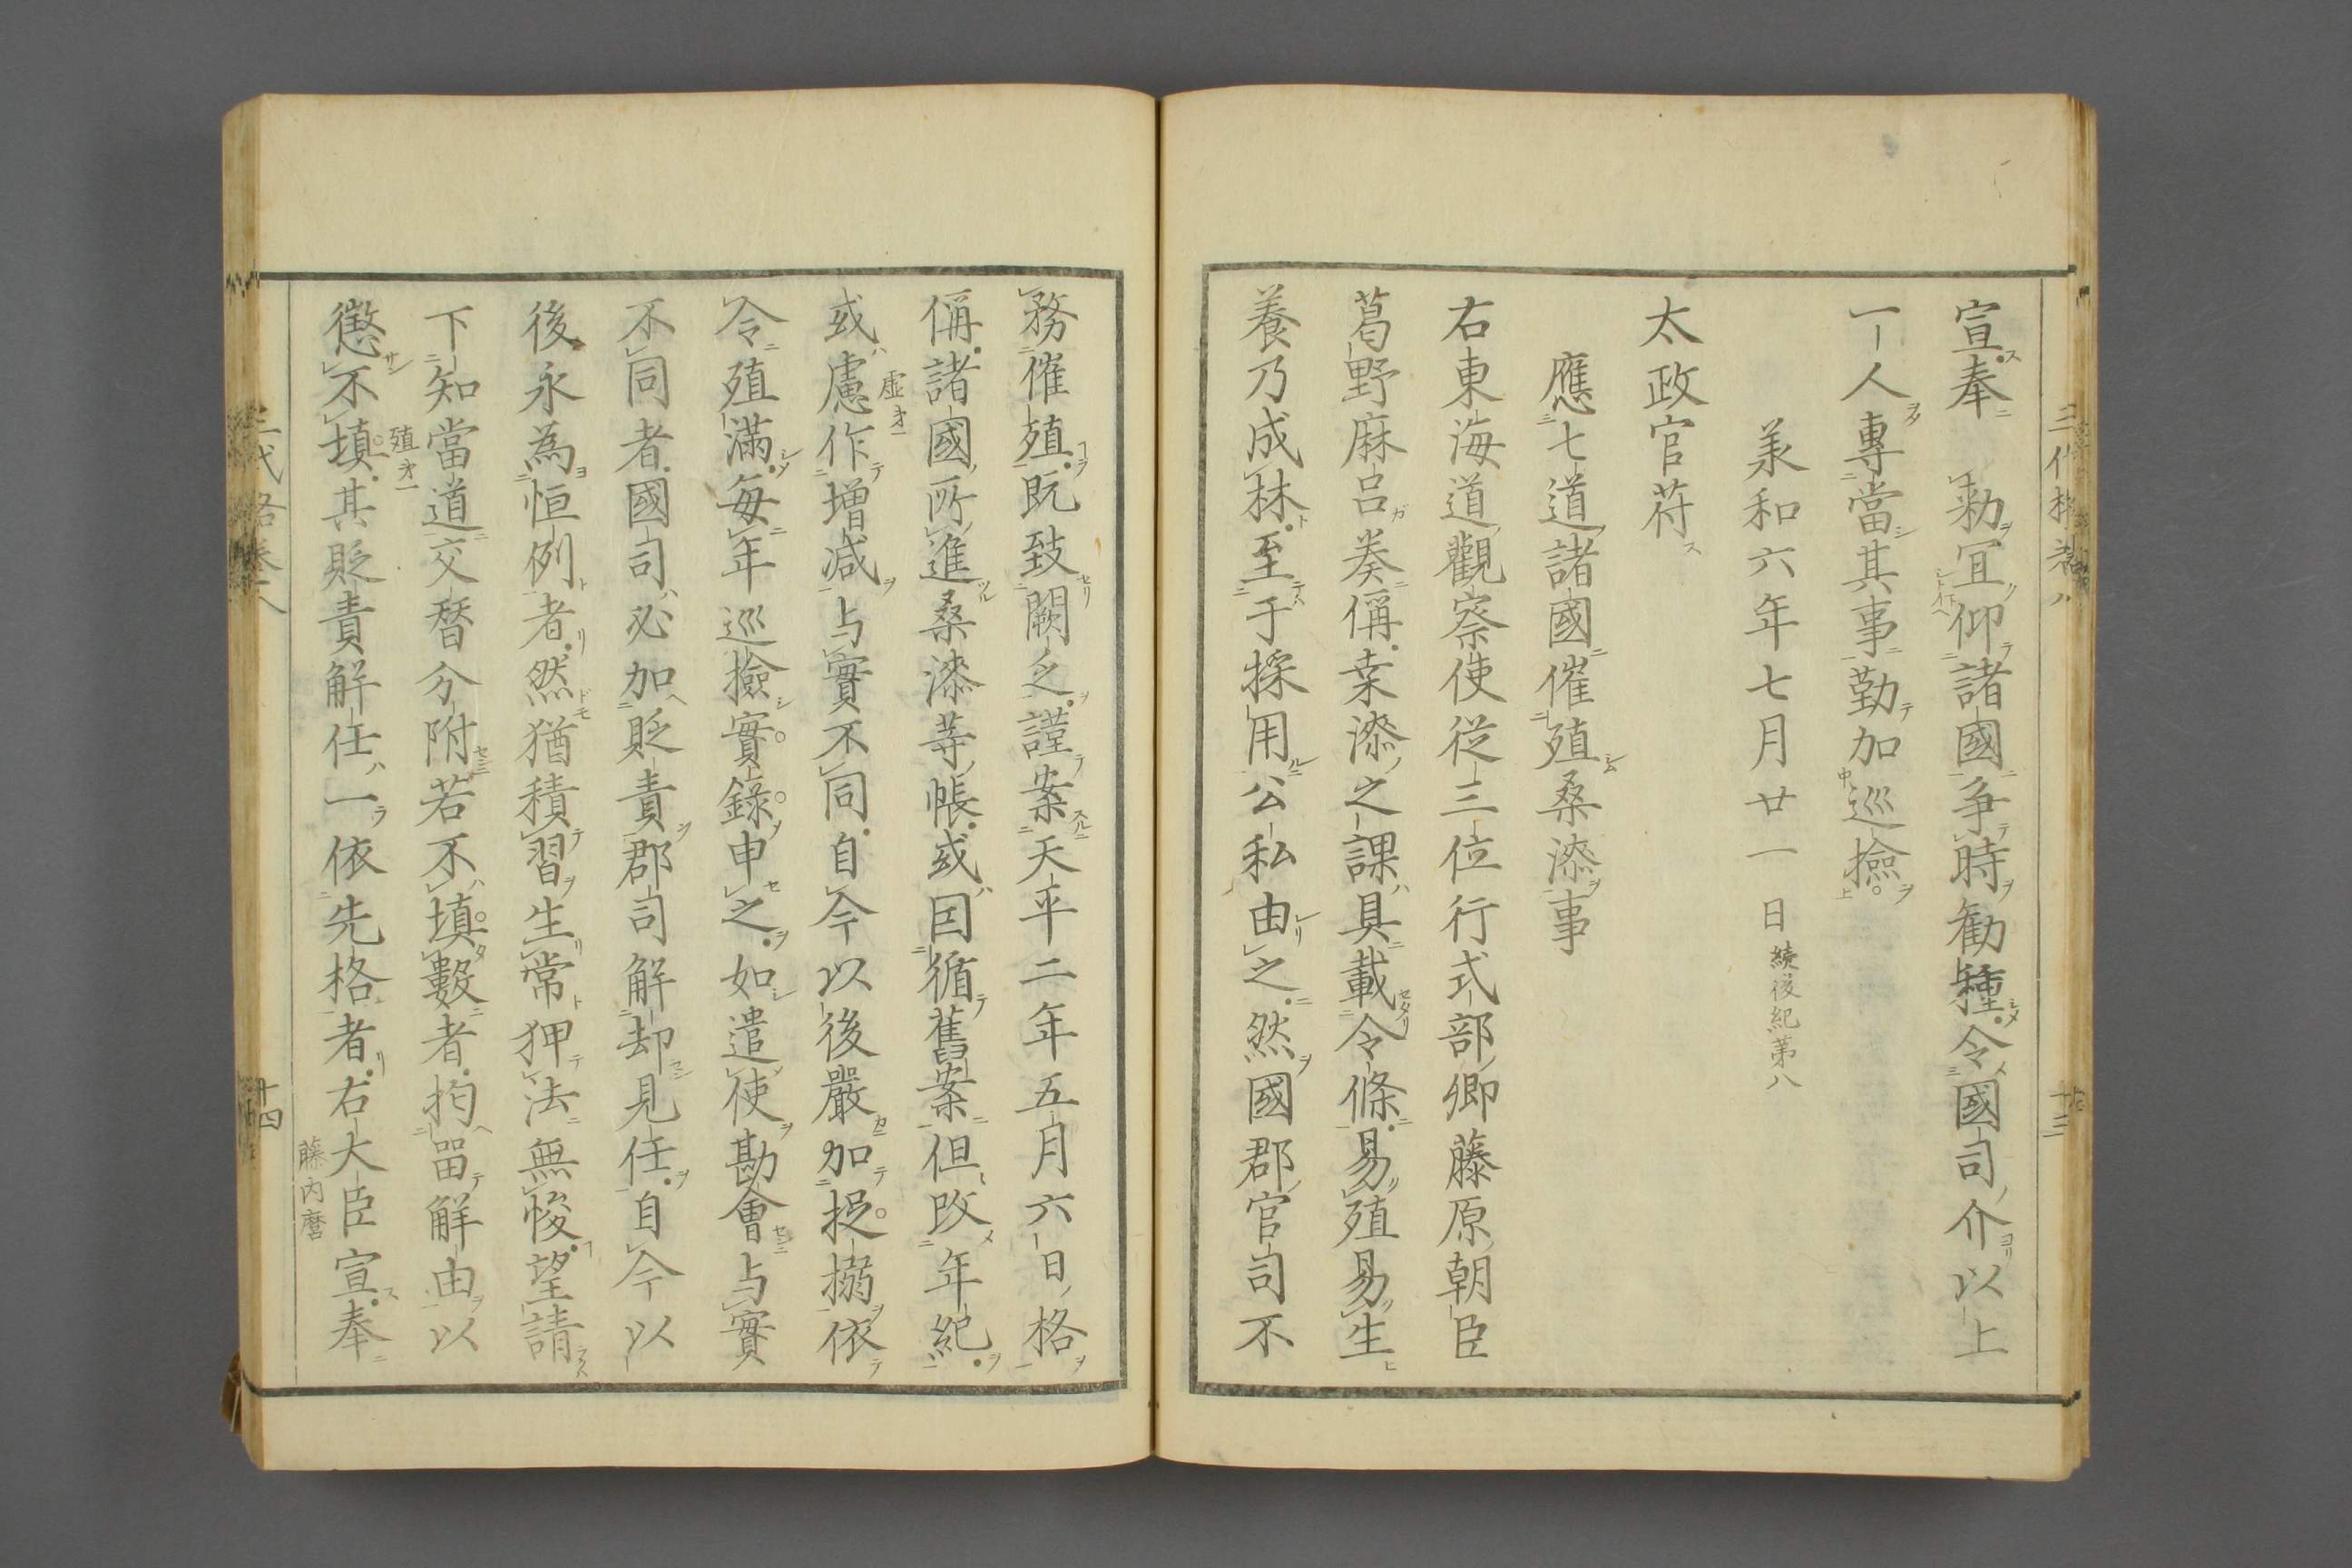 宣奉　勅冝仰諸國爭時勸種令國司介以上
一人專當其事勤加巡撿
羕和六年七月廿一日續後紀第八
太政官苻
應七道諸國催殖桑漆事
右東海道觀察使從三位行式部卿藤原朝臣
葛野麻呂奏偁桒漆之課具載令條易殖易生
養乃成林至于採用公私由之然國郡官司不
務催殖既致闕乏謹案天平二年五月六日格
偁諸國所進桑漆等帳或因循舊案但改年紀
或慮作增减与實不同自今以後嚴加捉搦依
令殖滿每年巡撿實錄申之如遣使勘會与實
不同者國司必加貶責郡司解却見任自今以
後永為恒例者然猶積習生常狎法無悛望請
下知當道交替分附若不填數者拘留解由以
懲不填其貶責解任一依先格者右大臣宣奉
虛才一
殖才一
藤内麿
三代格卷八
十四